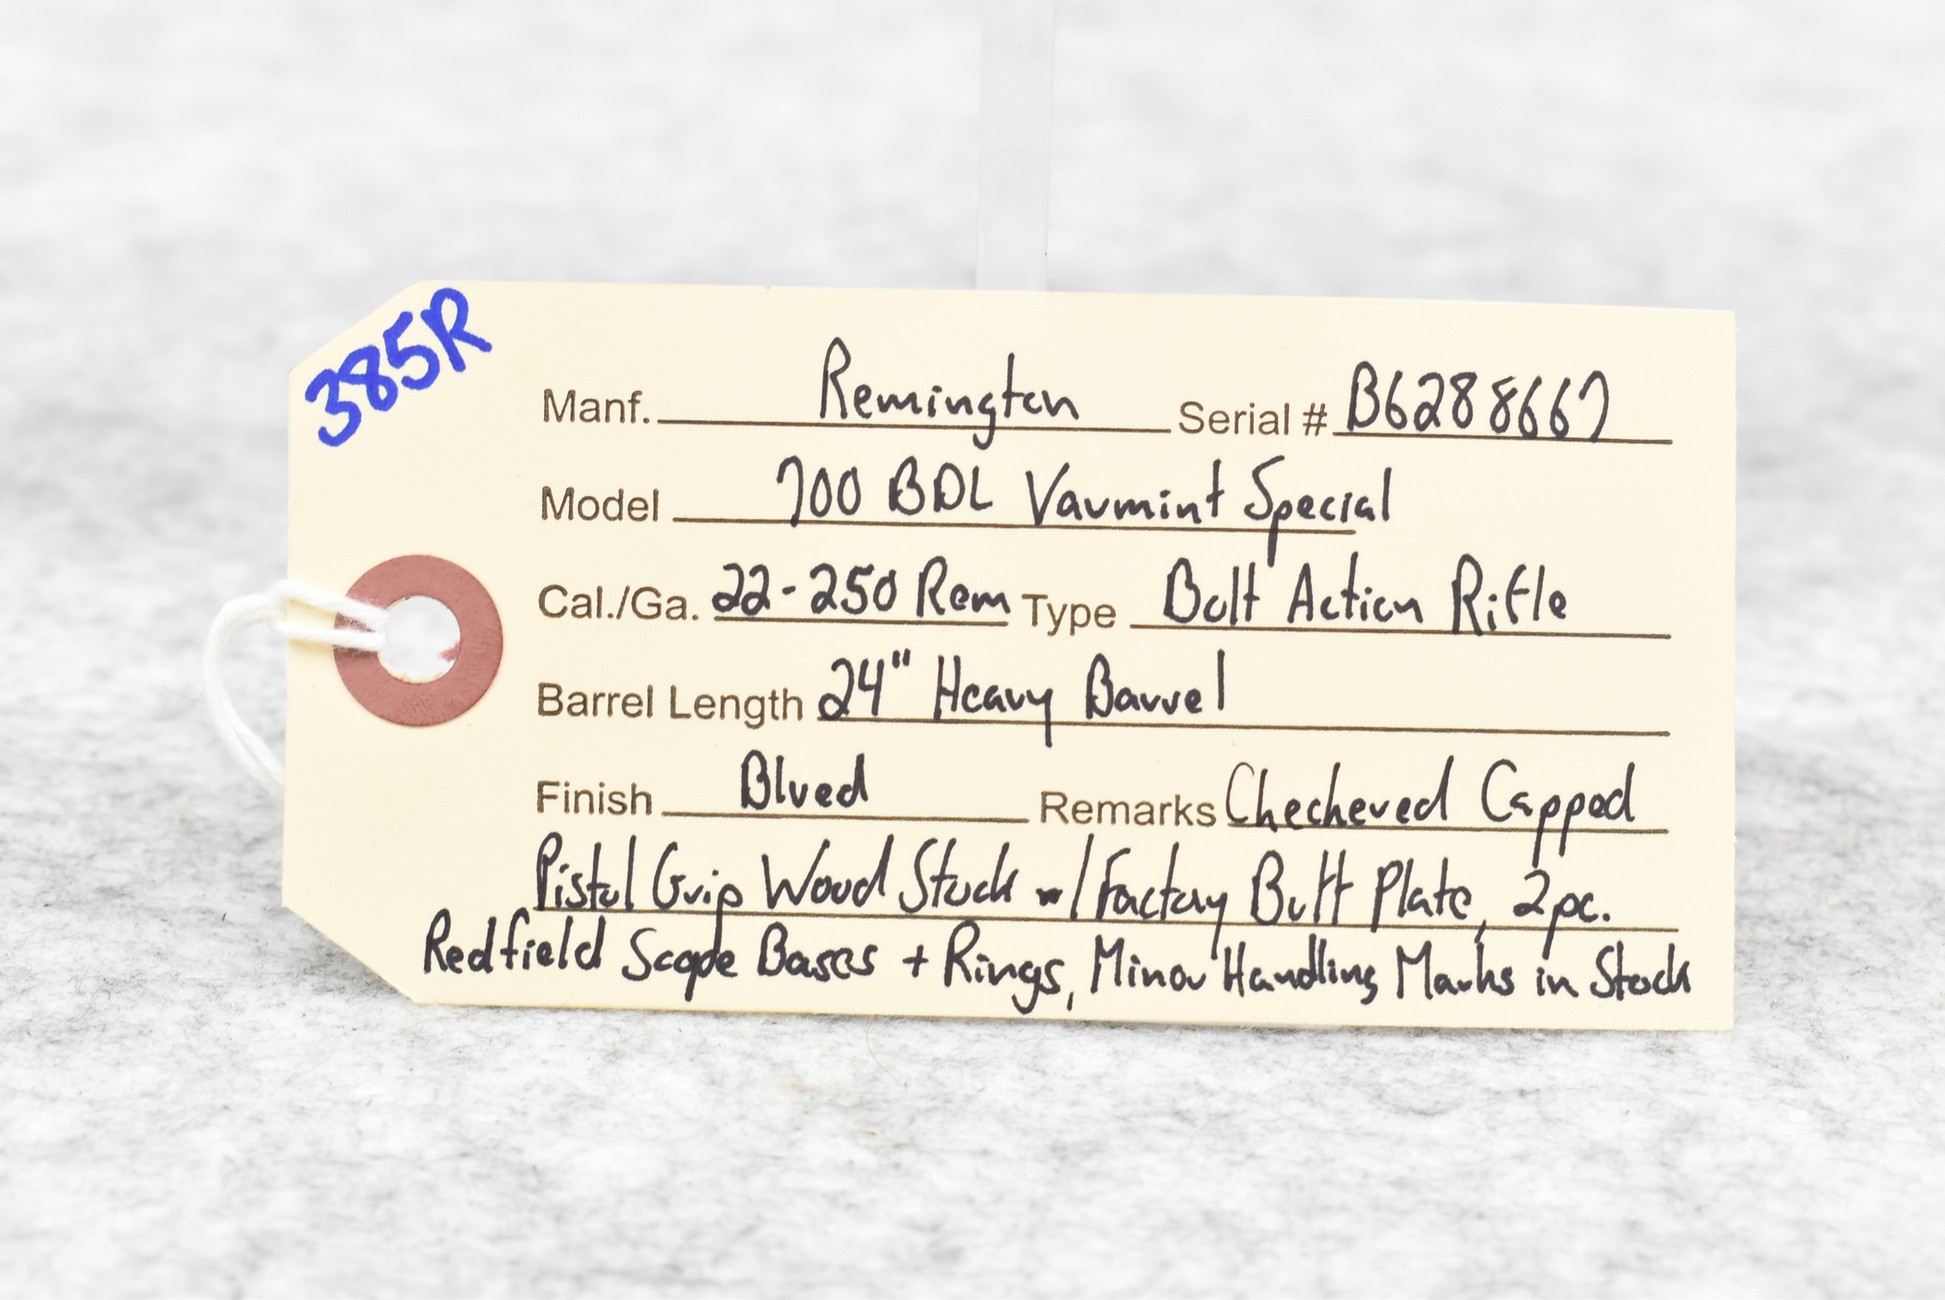 385R
Manf. Remington Serial # B6288667
Model 700 BDL Varmint Special
Cal./Ga. 22-250 Rem Type Bolt Action Rifle
Barrel Length 24" Heavy Barrel
Finish Blued Remarks Checkered Capped
Pistol Grip Wood Stock w/ Factory Butt Plate, 2pc.
Redfield Scope Bases + Rings, Minor Handling Marks in Stock